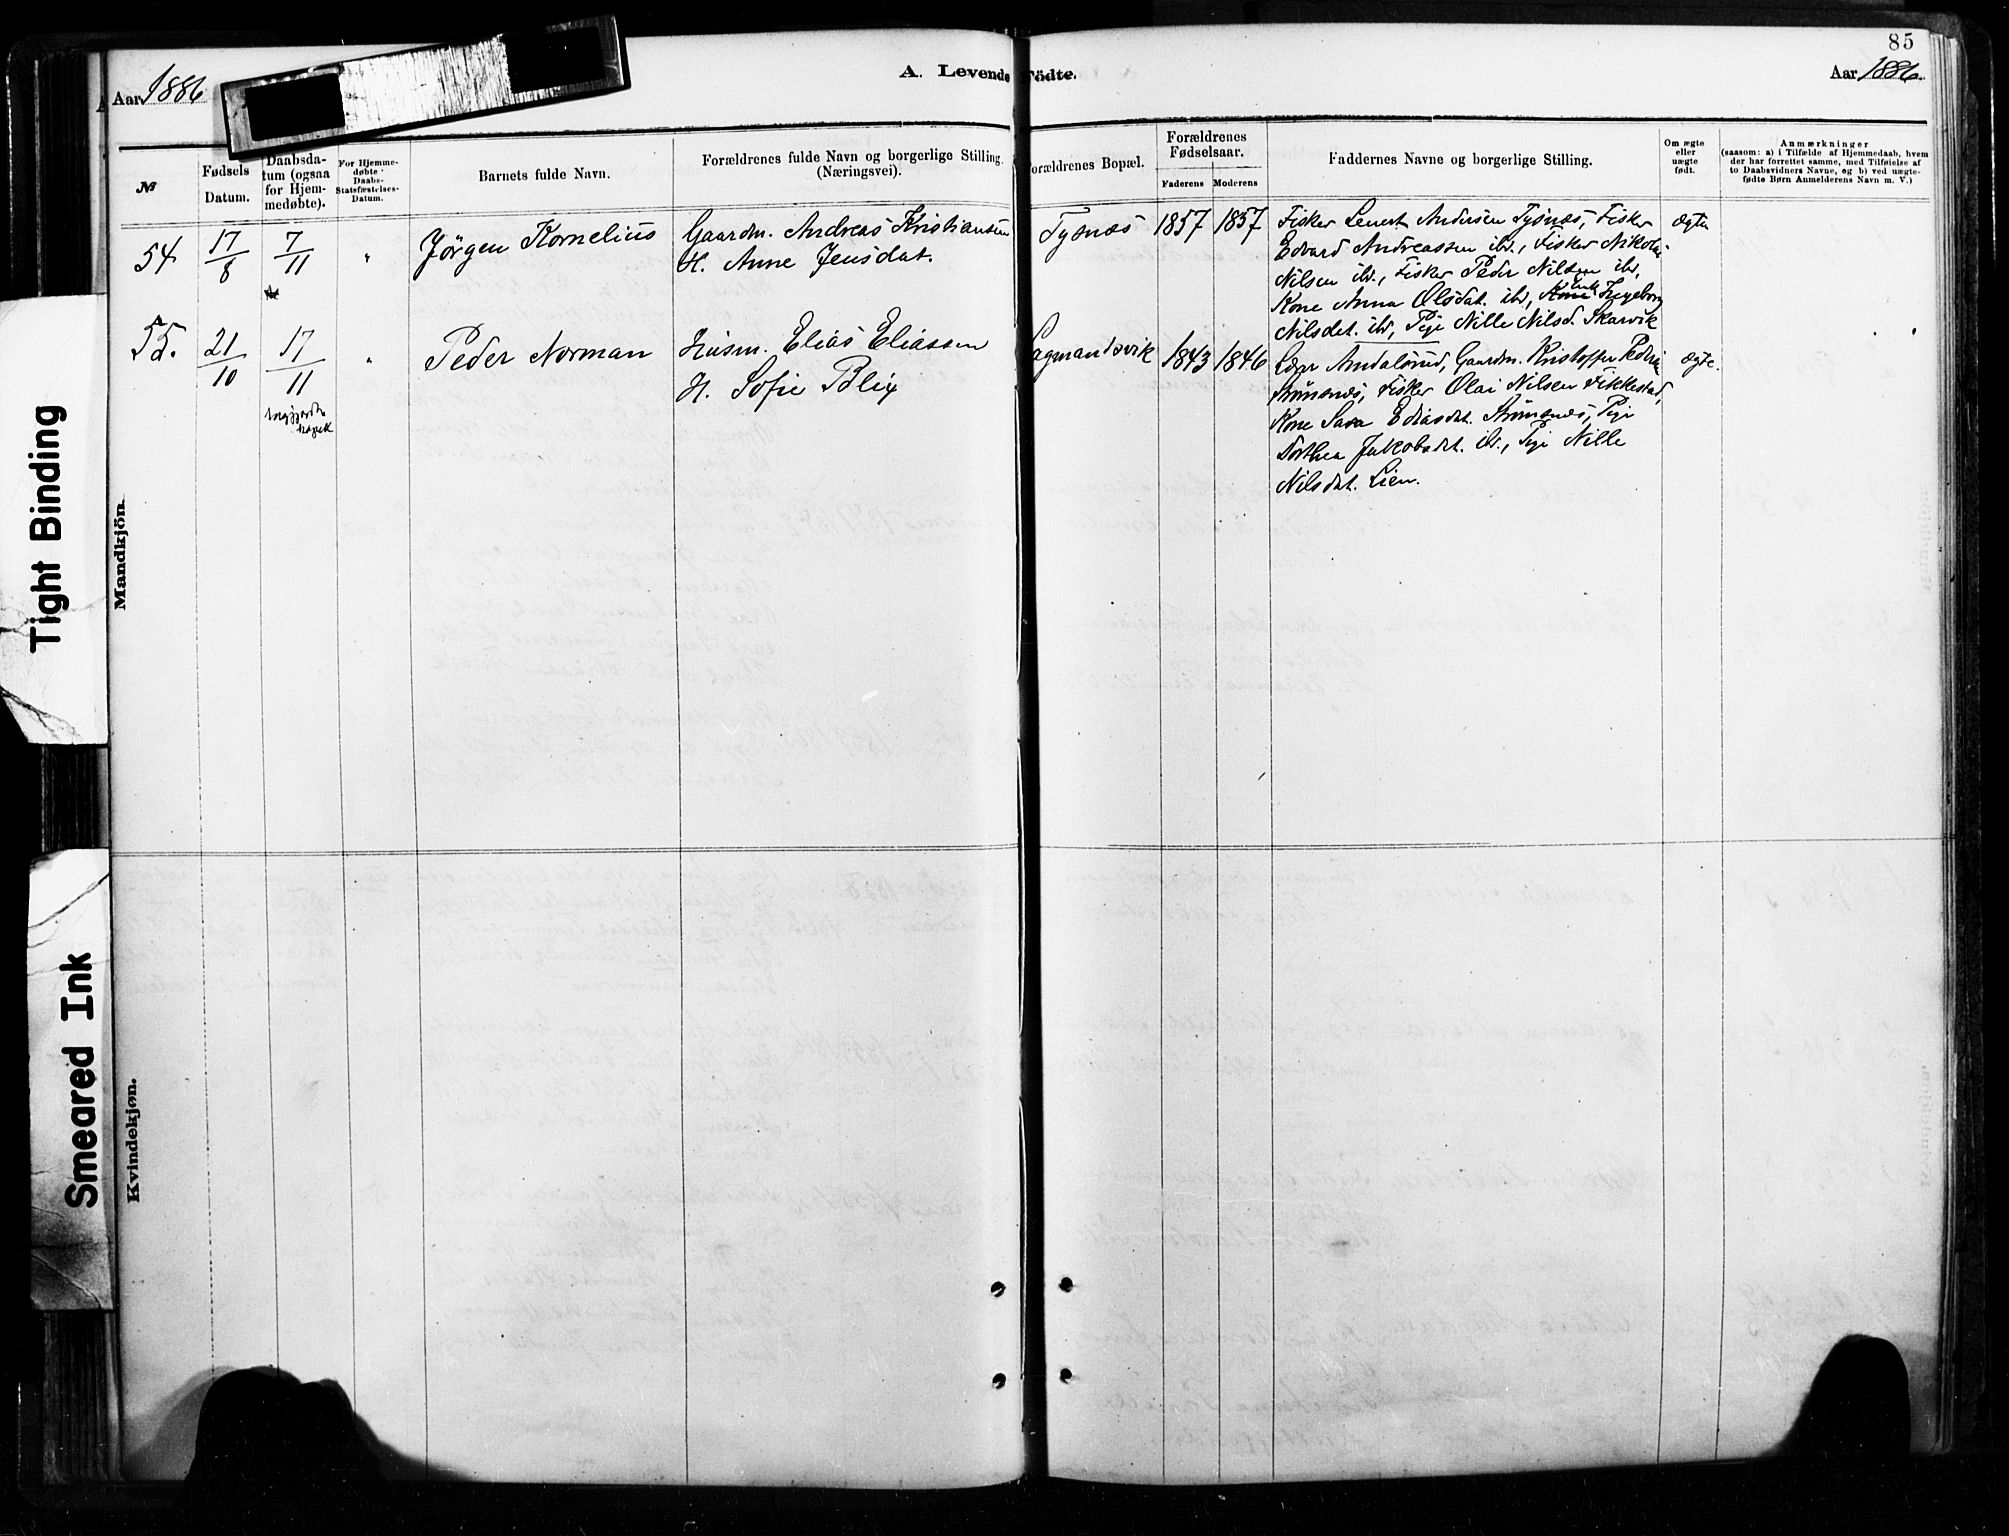 85
Aar 1886
A. Levende Födte.
Aar 1886.
№
Fødsels Datum.
Daabsdatum (ogsaa for Hjemmedøbte).
For Hjemmedøbte Daabs-Statsfæstelses-Datum.
Barnets fulde Navn.
Forældrenes fulde Navn og borgerlige Stilling. (Næringsvei).
Forældrenes Bopæl.
Forældrenes Fødselsaar.
Faderens
Moderens
Faddernes Navne og borgerlige Stilling.
Om ægte eller uægte født.
Anmærkninger
(saasom: a) i Tilfælde af Hjemmedaab, hvem
der har forrettet samme, med Tilføielse af
to Daabsvidners Navne, og b) ved uægte-
fødte Børn Anmelderens Navn m. V.)
Mandkjön.
54 17/8 7/11 " Jörgen Kornelius
Gaardm. Andreas Kristiansen
H. Anne Jensdat.
Tysnæs 1857 1857
Fisker Lenert Andersen Tysnæs, Fisker
Edvard Andreassen ibd., Fisker Nikolai
Nilsen ibd., Fisker Peder Nilsen ibd,
Kone Anna Olsdat. ibd, Enke Ingeborg
Nilsdat. ibd, Pige Nille Nilsd. Skarvik
ægte
55. 21/10 17/11 " Peder Norman
Husm. Elias Eliassen
H. Sofie Blix
Sagmandsvik 1843 1846
Gaardm. Kristoffer
Strømsnæs, Fisker Olai Nilsen
Kone Sara Eliasdat. Strømsnæs, Pige
Dorthea Jakobsdat. ibd., Pige Nille
Nilsdat. Lien.
ægte.
Kvindekjøn.
Tight Binding
Smeared Ink